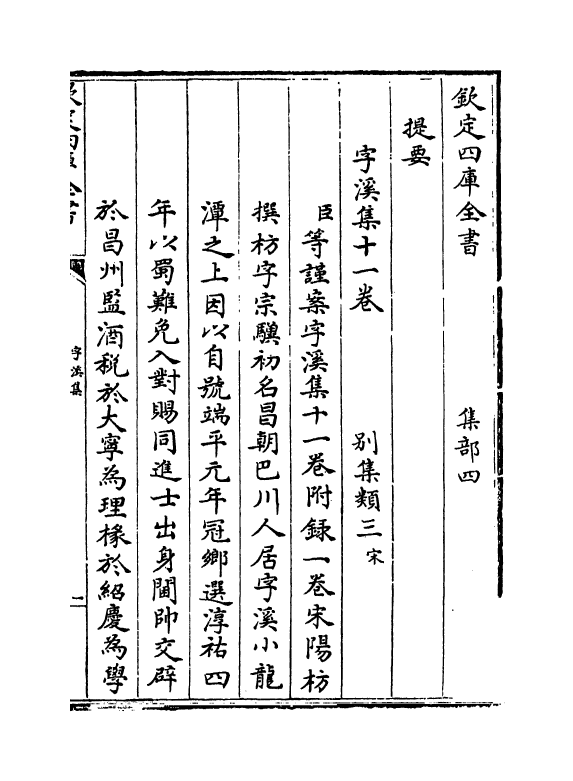 欽定四庫全書　集部四
提要
字溪集十一卷　別集類三宋
臣等謹案字溪集十一卷附録一卷宋陽枋
撰枋字宗驥初名昌朝巴川人居字溪小龍
潭之上因以自號端平元年冠鄉選淳祐四
年以蜀難免入對賜同進士出身閫帥交辟
於昌州監酒稅於大寧為理掾於紹慶為學
欽定四庫全書
字溪集